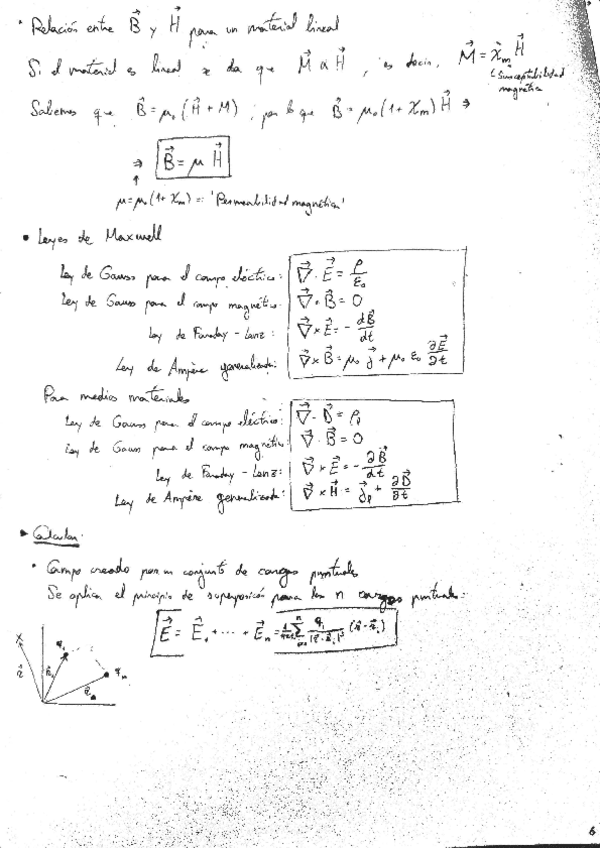 • Relación entre B⃗ y H⃗ para un material lineal
Si el material es lineal se da que M⃗ ∝ H⃗, es decir, M⃗ = χm H⃗
Susceptibilidad magnética
Sabemos que B⃗ = μ₀(H⃗ + M), por lo que B⃗ = μ₀(1 + χm)H⃗ ⇒
⇒ B⃗ = μ H⃗
↑
μ = μ₀(1 + χm) =: 'Permeabilidad magnética'
• Leyes de Maxwell
Ley de Gauss para el campo eléctrico: ∇⃗ · E⃗ = ρ/ε₀
Ley de Gauss para el campo magnético: ∇⃗ · B⃗ = 0
Ley de Faraday - Lenz: ∇⃗ × E⃗ = - dB⃗/dt
Ley de Ampère generalizada: ∇⃗ × B⃗ = μ₀ j⃗ + μ₀ ε₀ ∂E⃗/∂t
Para medios materiales
Ley de Gauss para el campo eléctrico: ∇⃗ · D⃗ = ρℓ
Ley de Gauss para el campo magnético: ∇⃗ · B⃗ = 0
Ley de Faraday - Lenz: ∇⃗ × E⃗ = - ∂B⃗/dt
Ley de Ampère generalizada: ∇⃗ × H⃗ = j⃗ℓ + ∂D⃗/∂t
▸ Calcular:
• Campo creado por un conjunto de cargas puntuales
Se aplica el principio de superposición para las n cargas puntuales:
E⃗ = E⃗₁ + ··· + E⃗n = 1/4πε₀ Σ qi/|r⃗ - r⃗i|³ (r⃗ - r⃗i)
x
q₁
qn
r⃗
r⃗₁
r⃗n
6